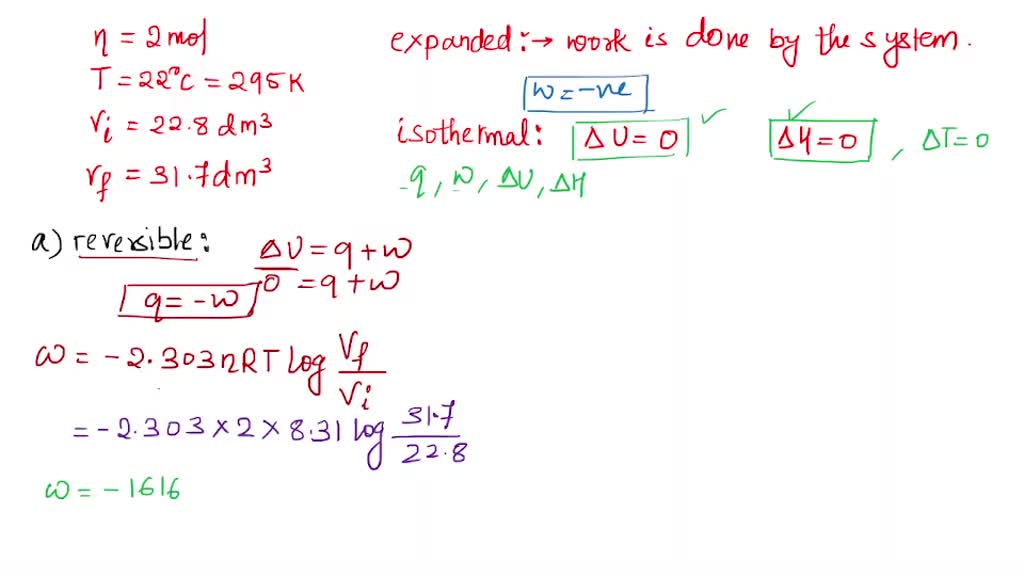 η = 2 mol
T = 22°C = 295 K
Vi = 22.8 dm³
Vf = 31.7 dm³
expanded: → work is done by the system.
w = -ve
isothermal: ΔU = 0 ✓ ΔH = 0 ✓, ΔT = 0
q, w, ΔU, ΔH
a) reversible:
ΔU = q + w
0 = q + w
q = -w
ω = -2.303 nRT log Vf/Vi
= -2.303 × 2 × 8.31 log 31.7/22.8
ω = -1616